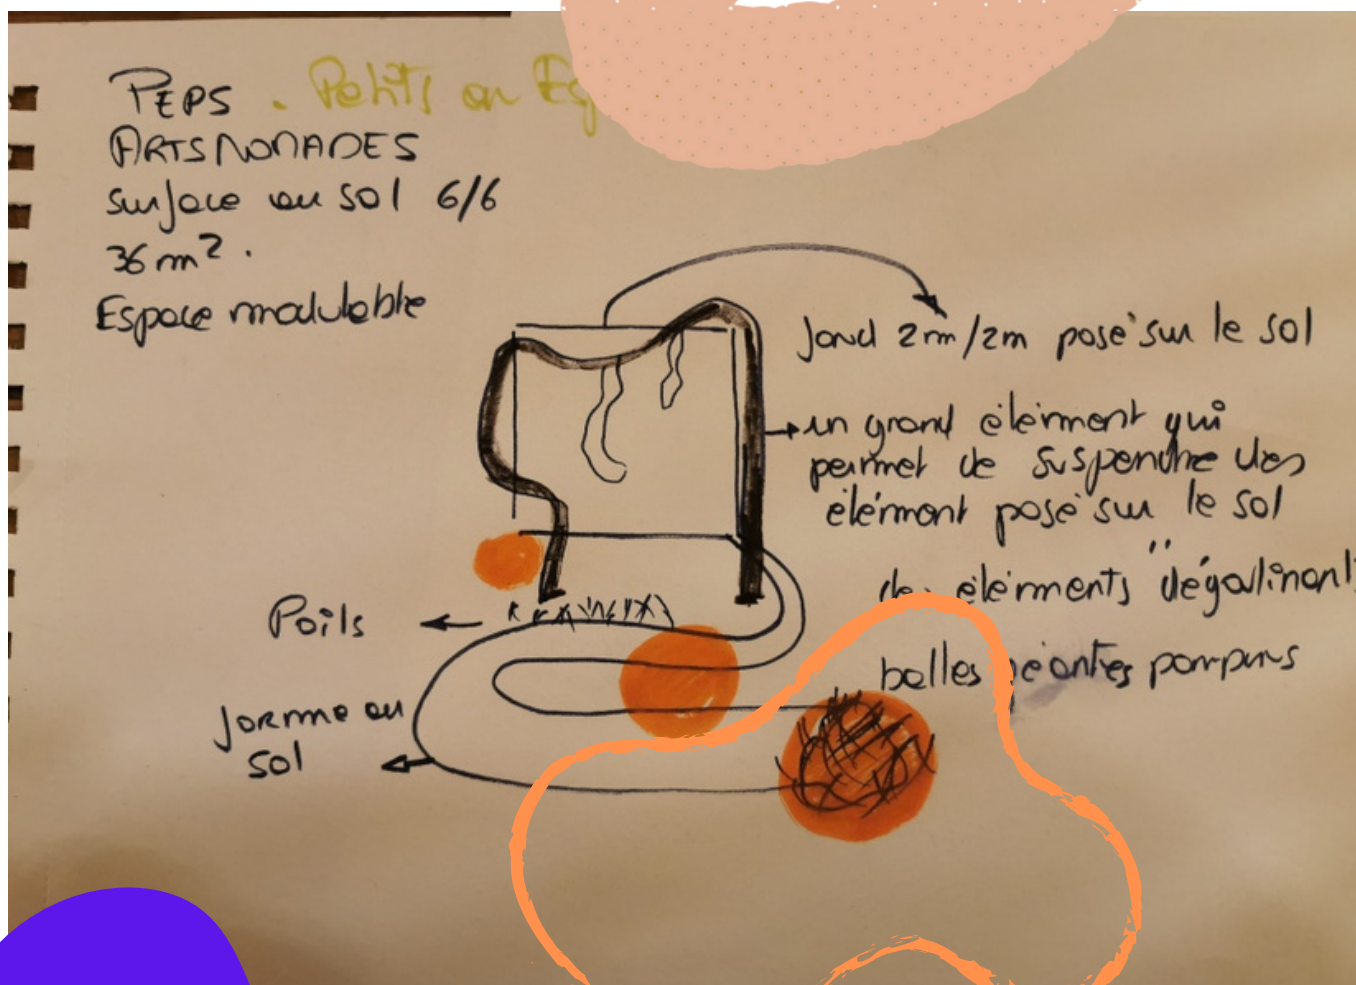 PEPS . Petits en
ARTS NOMADES
surface au sol 6/6
36 m² .
Espace modulable
fond 2m/2m posé sur le sol
un grand élément qui
permet de suspendre des
élément posé sur le sol
éléments "dégoulinant
balles géantes pompons
Poils
forme au
sol